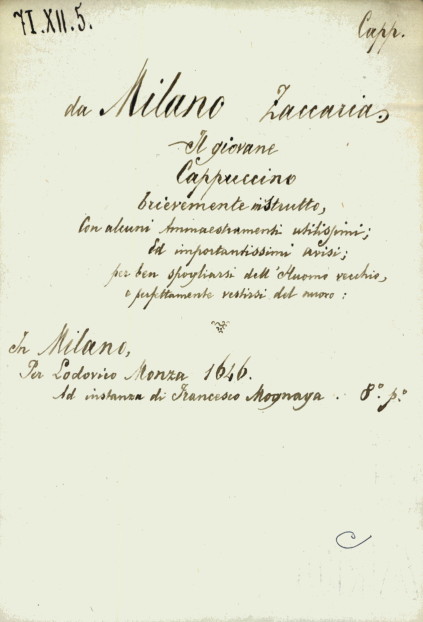 71.XII.5.
Capp.
da Milano Zaccaria,
Il giovane
Cappuccino
brievemente instrutto,
Con alcuni Ammaestramenti utilissimi;
Ed importantissimi avisi;
per ben spogliarsi dell'Huomo vecchio,
e perfettamente vestirsi del nuovo:
In Milano,
Per Lodovico Monza 1646.
Ad instanza di Francesco Mognaga. 8.° p.°